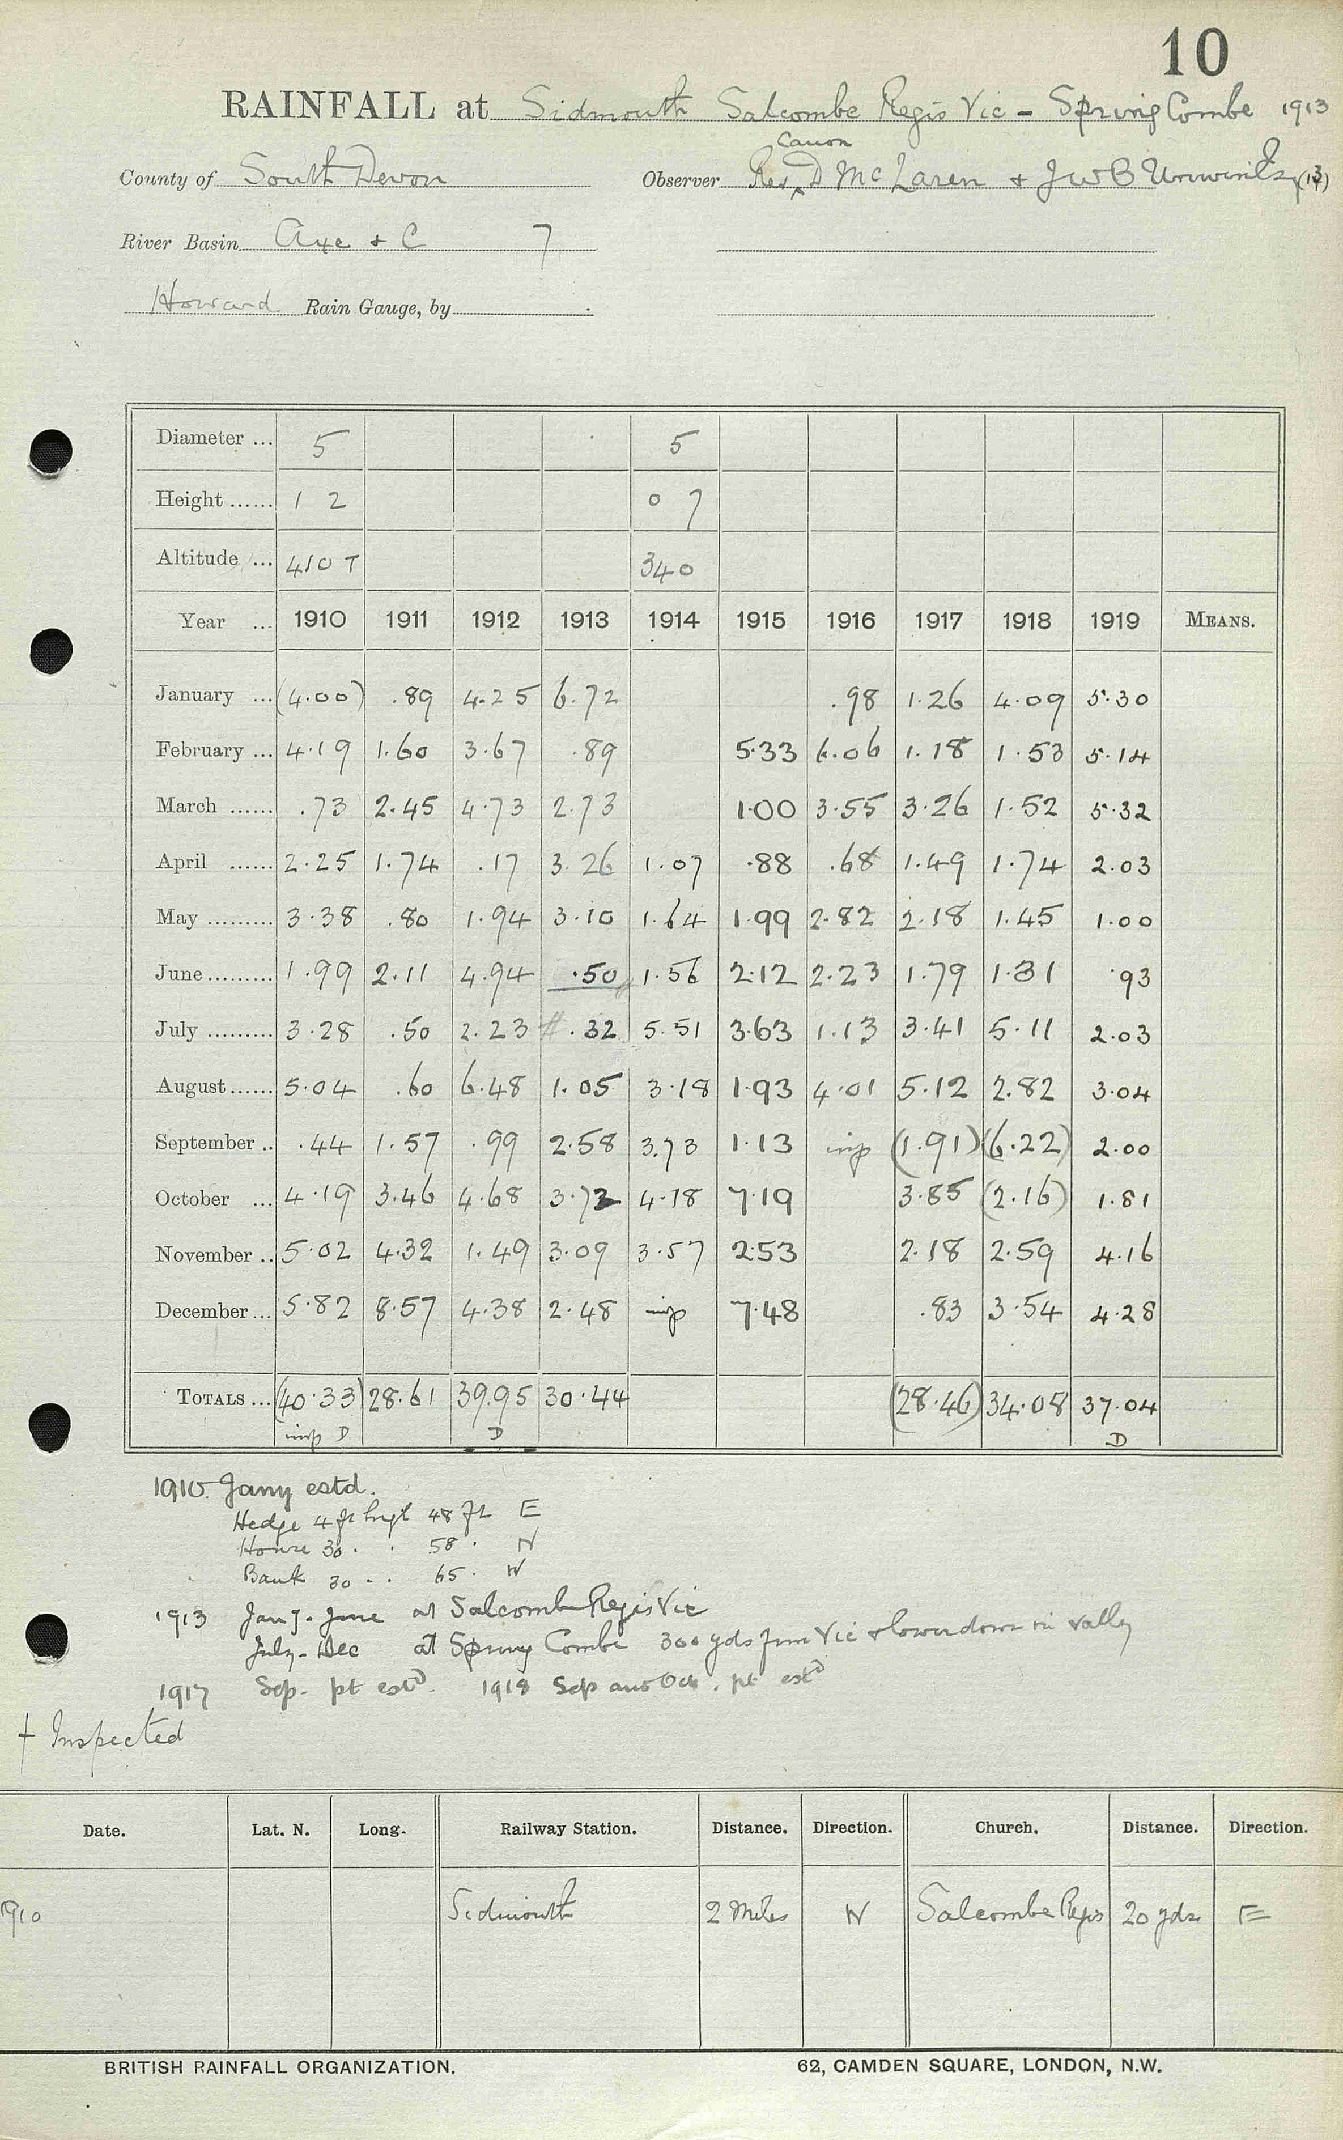 10
RAINFALL at Sidmouth Salcombe Regis Vic - Spring Combe 1913
Canon
County of South Devon Observer Rev D McLaren + J W B
River Basin Axe + C 7
Howard Rain Gauge, by
Diameter ... 5 5
Height ...... 1 2 0 7
Altitude ... 410 T 340
Year ... 1910 1911 1912 1913 1914 1915 1916 1917 1918 1919 MEANS.
January ... (4.00) .89 4.25 6.72 .98 1.26 4.09 5.30
February ... 4.19 1.60 3.67 .89 5.33 6.06 1.18 1.53 5.14
March ...... .73 2.45 4.73 2.73 1.00 3.55 3.26 1.52 5.32
April ...... 2.25 1.74 .17 3.26 1.07 .88 .68 1.49 1.74 2.03
May ......... 3.38 .80 1.94 3.10 1.64 1.99 2.82 2.18 1.45 1.00
June ......... 1.99 2.11 4.94 .50 1.56 2.12 2.23 1.79 1.31 .93
July ......... 3.28 .50 2.23 # .32 5.51 3.63 1.13 3.41 5.11 2.03
August ...... 5.04 .60 6.48 1.05 3.18 1.93 4.01 5.12 2.82 3.04
September .. .44 1.57 .99 2.58 3.73 1.13 imp (1.91) (6.22) 2.00
October ... 4.19 3.46 4.68 3.72 4.18 7.19 3.85 (2.16) 1.81
November .. 5.02 4.32 1.49 3.09 3.57 2.53 2.18 2.59 4.16
December ... 5.82 8.57 4.38 2.48 imp 7.48 .83 3.54 4.28
TOTALS ... (40.33) 28.61 39.95 30.44 (28.46) 34.08 37.04
imp D D D
1910 Jany estd.
Hedge 4 ft high 48 ft E
House 30 . . 58 . N
Bank 30 . . 65 . W
1913 Jany - June at Salcombe Regis Vic
July - Dec at Spring Combe 300 yds from Vic & lower down in valley
1917 Sep. pt estd. 1918 Sep and Oct. pt estd
+ Inspected
Date. Lat. N. Long. Railway Station. Distance. Direction. Church. Distance. Direction.
1910 Sidmouth 2 Miles W Salcombe Regis 20 yds E
BRITISH RAINFALL ORGANIZATION. 62, CAMDEN SQUARE, LONDON, N.W.